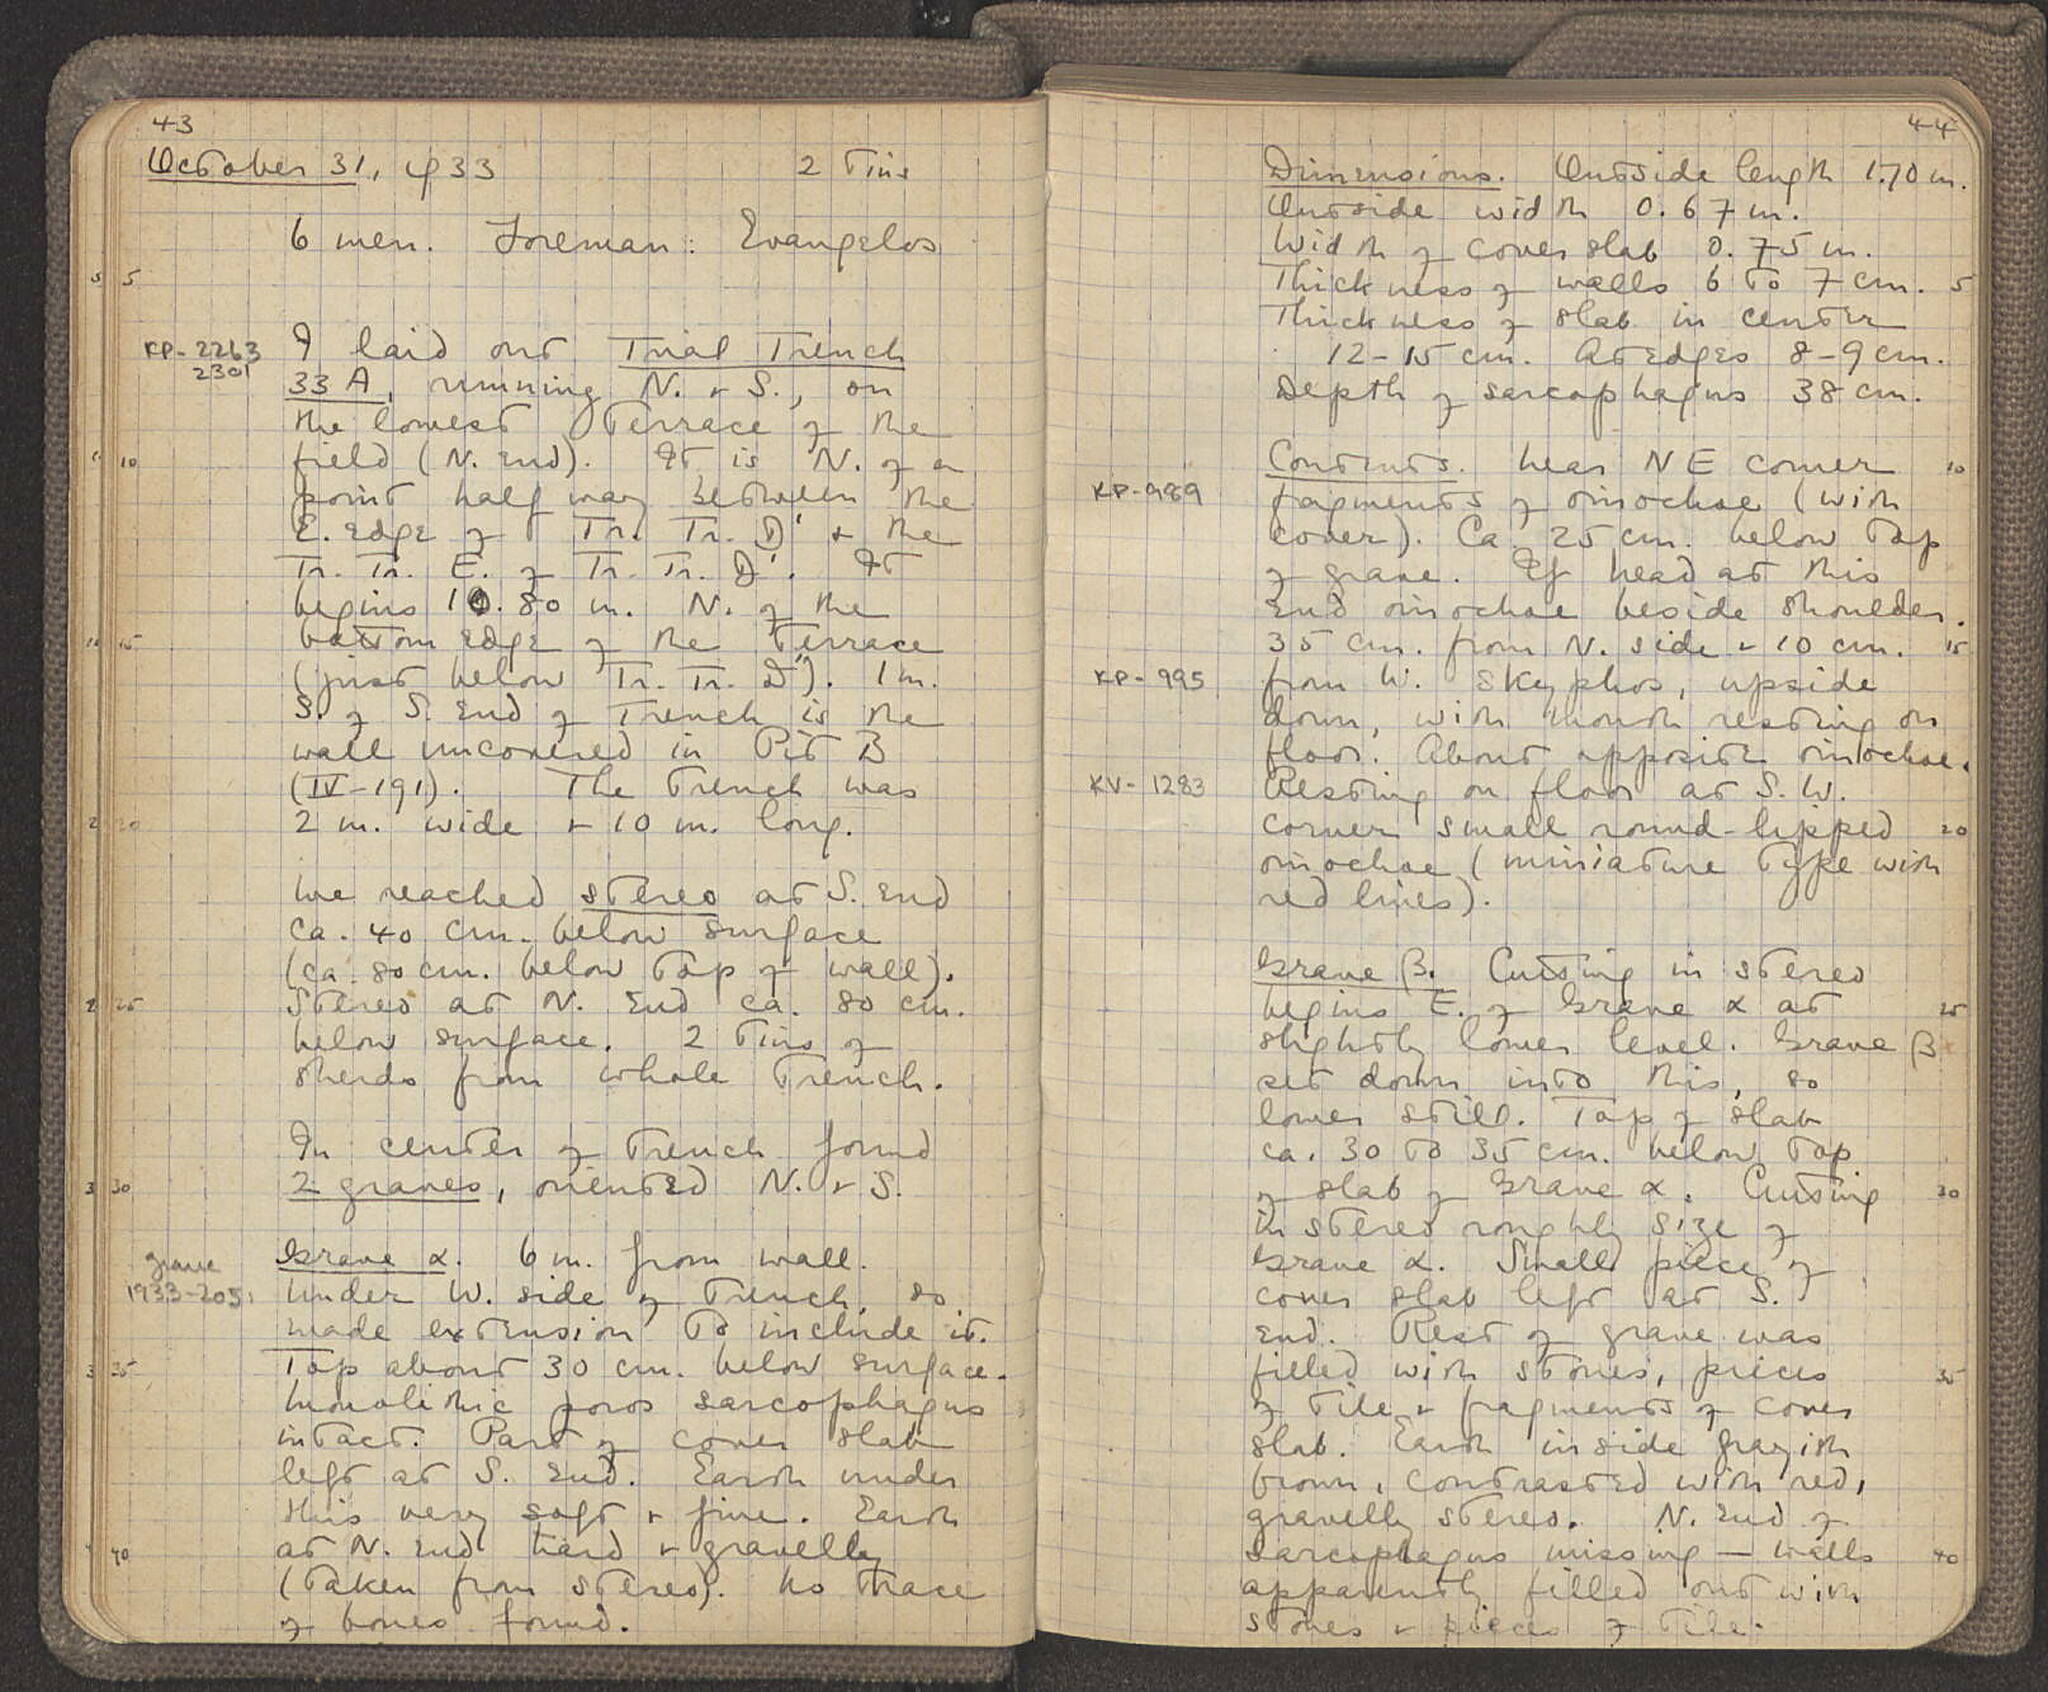 43
October 31, 1933 2 Tins
6 men. Foreman: Evangelos
5 5
KP-2263
2301
I laid out Trial Trench
33 A, running N. + S., on
the lowest Terrace of the
10 field (N. End). It is N. of a
point half way between the
E. edge of Tr. Tr. D' + the
Tr. Tr. E. of Tr. Tr. D'. It
begins 10.80 m. N. of the
15 bottom edge of the Terrace
(just below Tr. Tr. D'). 1 m.
S. of S. End of Trench is the
wall uncovered in Pit B
(IV-191). The Trench was
20 2 m. wide + 10 m. long.
We reached stereo at S. End
ca. 40 cm. below surface
(ca. 80 cm. below Top of wall).
25 Stereo at N. End ca. 80 cm.
below surface. 2 Tins of
sherds from whole Trench.
In center of Trench found
30 2 graves, oriented N. + S.
Grave α. 6 m. from wall.
grave
1933-205
Under W. side of Trench, so
made extension to include it.
35 Top about 30 cm. below surface.
Monolithic poros sarcophagus
intact. Part of cover slab
left at S. End. Earth under
this very soft + fine. Earth
40 at N. End hard + gravelly
(taken from stereo). No trace
of bones found.
44
Dimensions. Outside length 1.70 m.
Outside width 0.67 m.
Width of cover slab 0.75 m.
Thickness of walls 6 to 7 cm. 5
Thickness of slab in center
12-15 cm. At edges 8-9 cm.
Depth of sarcophagus 38 cm.
Contents. Near NE corner 10
KP-989 fragments of oinochoe (with
cover). Ca. 25 cm. below Top
of grave. If head at this
End oinochoe beside shoulder.
35 cm. from N. side + 10 cm. 15
KP-995 from W. Skyphos, upside
down, with mouth resting on
floor. About opposite oinochoe.
KV-1283 Resting on floor at S.W.
corner small round-lipped 20
oinochoe (miniature Type with
red lines).
Grave β. Cutting in stereo
begins E. of Grave α at 25
slightly lower level. Grave β
set down into this, so
lower still. Top of slab
ca. 30 to 35 cm. below Top
of slab of Grave α. Cutting 30
in stereo roughly size of
Grave α. Small piece of
cover slab left at S.
End. Rest of grave was
filled with stones, pieces 35
of Tile + fragments of cover
slab. Earth inside grayish
brown, contrasted with red,
gravelly stereo. N. End of
sarcophagus missing — walls 40
apparently filled out with
stones + pieces of Tile.